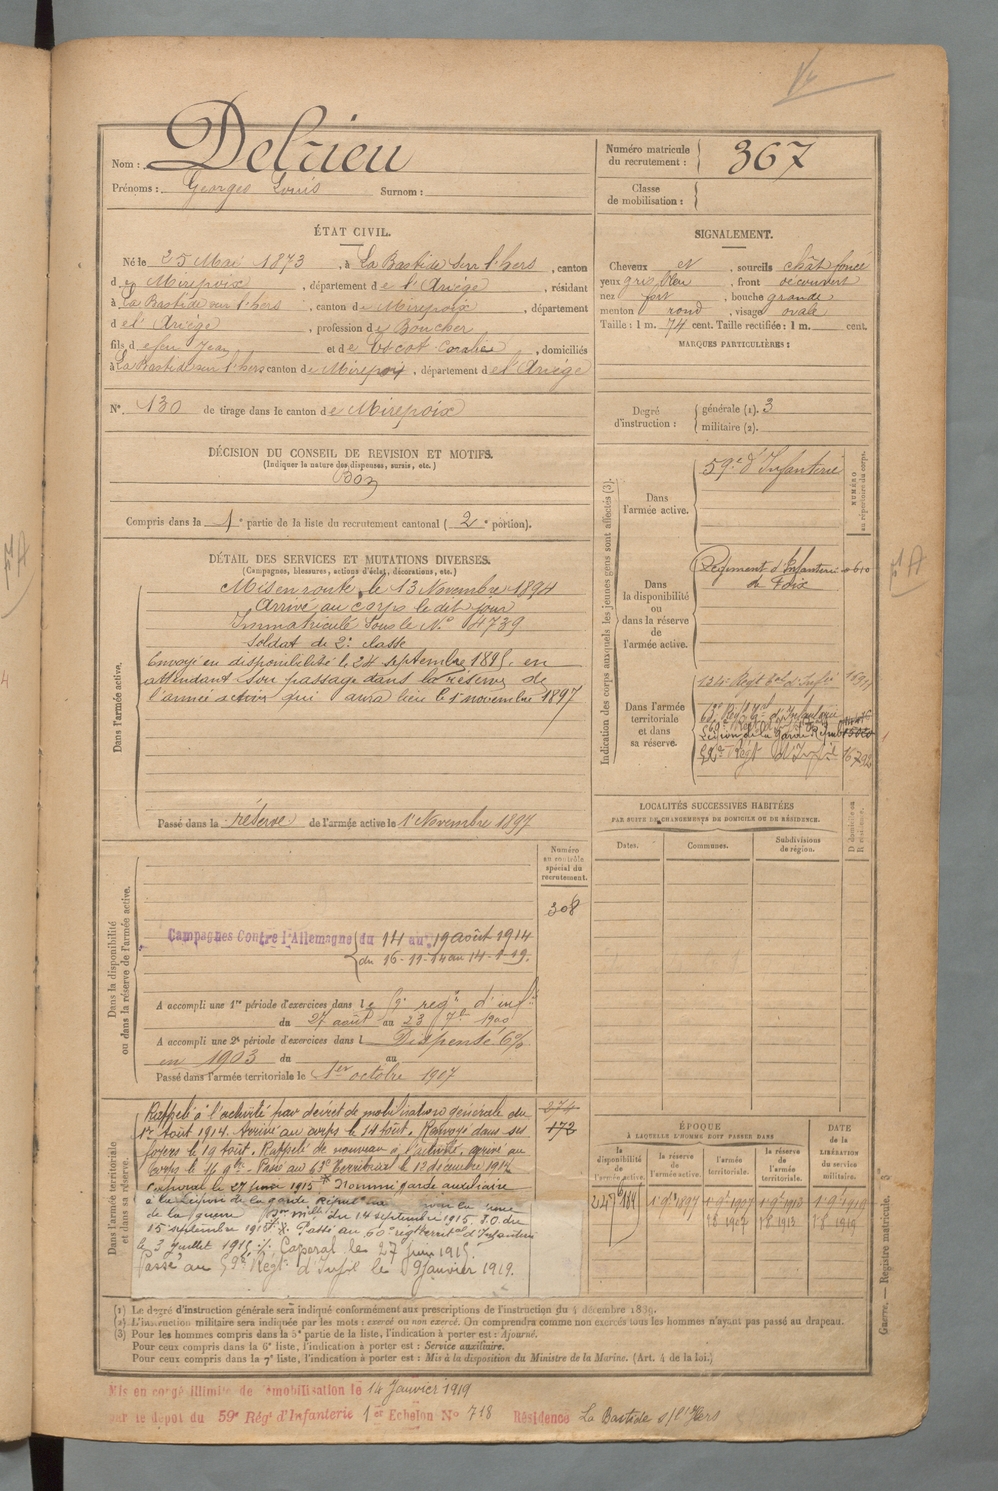 Nom : Delrieu
Prénoms : Georges Louis Surnom :
Numéro matricule du recrutement : 367
Classe de mobilisation :
ÉTAT CIVIL.
Né le 25 Mai 1873, à La Bastide sur l'hers, canton
d e Mirepoix, département d e l'Ariège, résidant
à La Bastide sur l'hers, canton d e Mirepoix, département
d e l'Ariège, profession d e Boucher
fils d e feu Jean et de Vicot Coralie, domiciliés
à La Bastide sur l'hers canton d e Mirepoix, département d e l'Ariège
N° 130 de tirage dans le canton d e Mirepoix
SIGNALEMENT.
Cheveux et, sourcils chât foncé
yeux gris bleu, front découvert
nez fort, bouche grande
menton rond, visage ovale
Taille : 1 m. 74 cent. Taille rectifiée : 1 m. cent.
MARQUES PARTICULIÈRES :
Degré d'instruction : générale (1). 3
militaire (2).
DÉCISION DU CONSEIL DE REVISION ET MOTIFS.
(Indiquer la nature des dispenses, sursis, etc.)
Bon
Compris dans la 1e partie de la liste du recrutement cantonal ( 2e portion).
DÉTAIL DES SERVICES ET MUTATIONS DIVERSES.
(Campagnes, blessures, actions d'éclat, décorations, etc.)
Dans l'armée active.
Mis en route le 13 Novembre 1894
Arrivé au corps le dit jour
Immatriculé sous le N° 4739
Soldat de 2e classe
Envoyé en disponibilité le 24 septembre 1895, en
attendant son passage dans la réserve de
l'armée active qui aura lieu le 1er novembre 1897
Passé dans la réserve de l'armée active le 1er Novembre 1897
Indication des corps auxquels les jeunes gens sont affectés (3).
NUMÉRO au répertoire du corps.
Dans l'armée active.
59e d'Infanterie
Dans la disponibilité ou dans la réserve de l'armée active.
Régiment d'Infanterie
de Foix
Dans l'armée territoriale et dans sa réserve.
134e Regt tal d'Infie
Légion de la Garde Répub
LOCALITÉS SUCCESSIVES HABITÉES
PAR SUITE DE CHANGEMENTS DE DOMICILE OU DE RÉSIDENCE.
Dates. Communes. Subdivisions de région.
D domicile ou R résidence.
Dans la disponibilité ou dans la réserve de l'armée active.
Numéro au contrôle spécial du recrutement.
308
Campagnes Contre l'Allemagne du 14 au 19 août 1914
du 16-11-14 au 14-1-19.
A accompli une 1re période d'exercices dans le 59e regt d'infie
du 27 août au 23 7bre 1900
A accompli une 2e période d'exercices dans l Dispensé 6%
en 1903 du au
Passé dans l'armée territoriale le 1er octobre 1907
Dans l'armée territoriale et dans sa réserve.
374
172
Rappelé à l'activité par décret de mobilisation générale du
1er août 1914. Arrivé au corps le 14 août. Renvoyé dans ses
foyers le 19 août. Rappelé de nouveau à l'activité, arrivé au
Corps le 16 9bre. Passé au 63e Territorial le 1er décembre 1914
Caporal le 27 juin 1915 Nommé garde auxiliaire
à la Légion de la garde
de la guerre du 14 septembre 1915. J.O. du
15 septembre 1915. Passé au 60e regt territal d'Infanterie
le 3 Juillet 1915. Caporal le 27 juin 1915.
Passé au 59e Regt d'Infie le 9 janvier 1919.
ÉPOQUE
À LAQUELLE L'HOMME DOIT PASSER DANS
la disponibilité de l'armée active.
la réserve de l'armée active.
l'armée territoriale.
la réserve de l'armée territoriale.
DATE de la LIBÉRATION du service militaire.
1er 9bre 1897 1er 9bre 1907 1er 9bre 1913 1er 9bre 1919
1er 8bre 1907 1er 8bre 1913 1er 8bre 1919
(1) Le degré d'instruction générale sera indiqué conformément aux prescriptions de l'instruction du 4 décembre 1889.
(2) L'instruction militaire sera indiquée par les mots : exercé ou non exercé. On comprendra comme non exercés tous les hommes n'ayant pas passé au drapeau.
(3) Pour les hommes compris dans la 5e partie de la liste, l'indication à porter est : Ajourné.
Pour ceux compris dans la 6e liste, l'indication à porter est : Service auxiliaire.
Pour ceux compris dans la 7e liste, l'indication à porter est : Mis à la disposition du Ministre de la Marine. (Art. 4 de la loi.)
Guerre. — Registre matricule.
Mis en congé illimité de démobilisation le 14 Janvier 1919
par le dépôt du 59e Régt d'Infanterie 1er Echelon No 718 Résidence La Bastide s/l'Hers